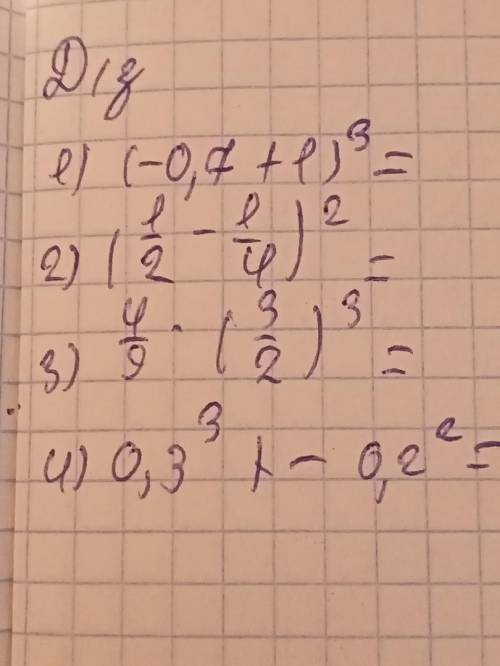 Д/з
1) (-0,7 + 1)³ =
2) (1/2 - 1/4)² =
3) 4/9 · (3/2)³ =
4) 0,3³ + - 0,2² =